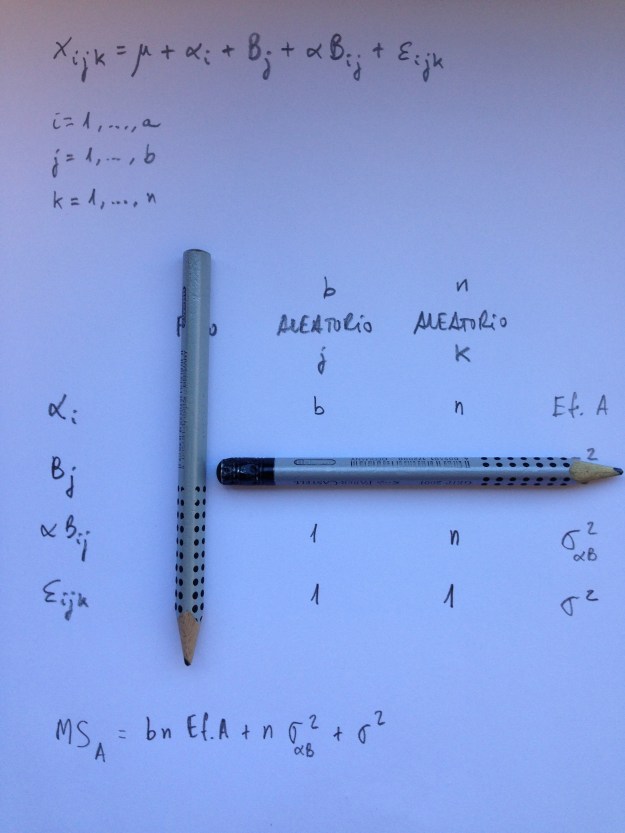 Xijk = μ + αi + Bj + αBij + εijk
i = 1, ..., a
j = 1, ..., b
k = 1, ..., n
b n
ALEATORIO ALEATORIO
j k
αi b n Ef. A
Bj 2
αBij 1 n σ²αB
εijk 1 1 σ²
MSA = bn Ef.A + n σ²αB + σ²